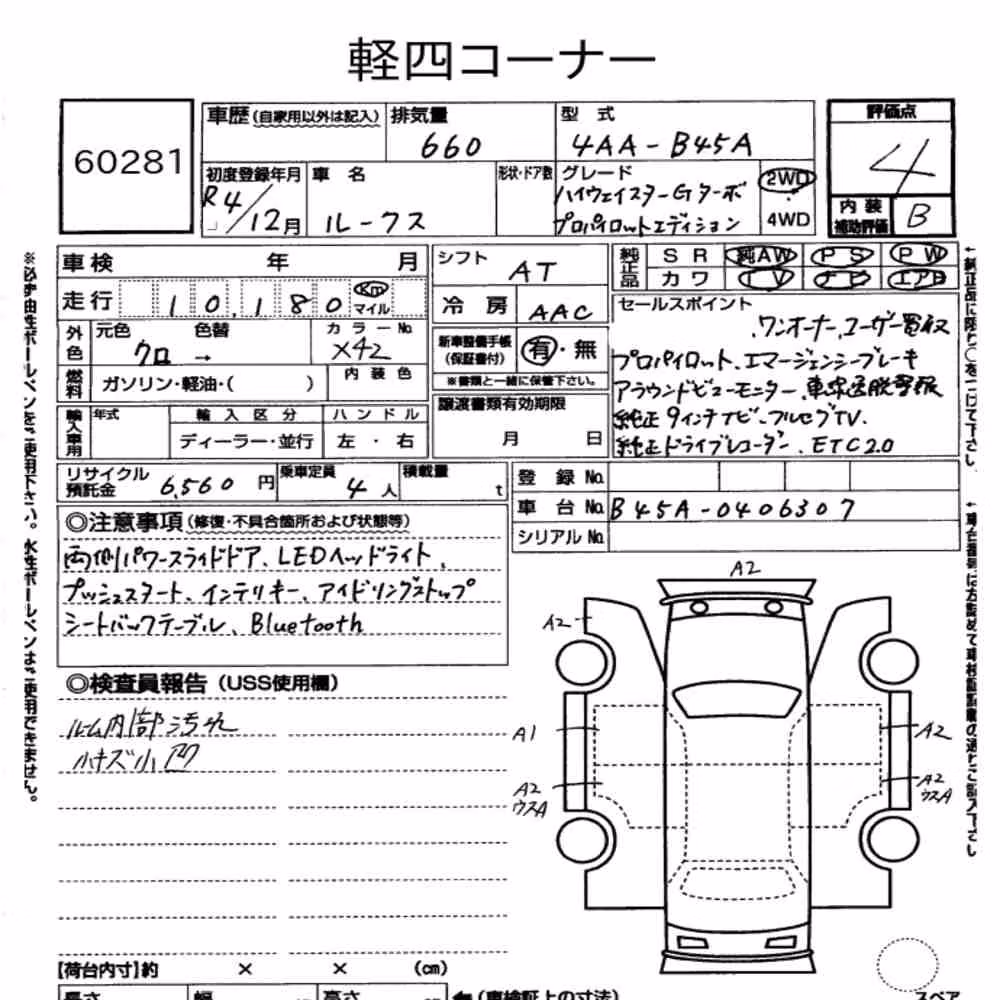 軽四コーナー
60281
車歴 (自家用以外は記入)
排気量
660
型 式
4AA-B45A
評価点
4
初度登録年月
R4/12月
車 名
ルークス
形状・ドア数
グレード
ハイウェイスターGターボ
プロパイロットエディション
2WD
4WD
内 装
補助評価
B
車検 年 月
シフト
AT
純正品
SR 純AW PS PW
カワ TV ナビ エアB
走行 10,180 Km マイル
冷 房
AAC
セールスポイント
ワンオーナー、ユーザー買取
外色
元色 色替
クロ →
カラーNo.
X42
新車整備手帳
(保証書付)
有・無
※書類と一緒に保管下さい。
プロパイロット、エマージェンシーブレーキ
アラウンドビューモニター、車線逸脱警報
純正9インチナビ・フルセグTV、
純正ドライブレコーダー、ETC2.0
燃料
ガソリン・軽油・( )
内 装 色
譲渡書類有効期限
月 日
輸入車用
年式
輸 入 区 分
ハ ン ド ル
ディーラー・並行
左 ・ 右
リサイクル
預託金
6,560 円
乗車定員
4 人
積載量
t
登 録 No.
車 台 No.
B45A-0406307
シリアル No.
◎注意事項 (修復・不具合箇所および状態等)
両側パワースライドドア、LEDヘッドライト、
プッシュスタート、インテリキー、アイドリングストップ
シートバックテーブル、Bluetooth
◎検査員報告 (USS使用欄)
ルーム内部汚れ
小キズ小凹
A2
A2
A1
A2
A2
ウスA
A2
ウスA
【荷台内寸】約 × × (cm)
長さ 幅 高さ
(車検証上の寸法)
スペア
※必ず油性ボールペンをご使用下さい。水性ボールペンはご使用できません。
↑純正品に限り○をつけて下さい